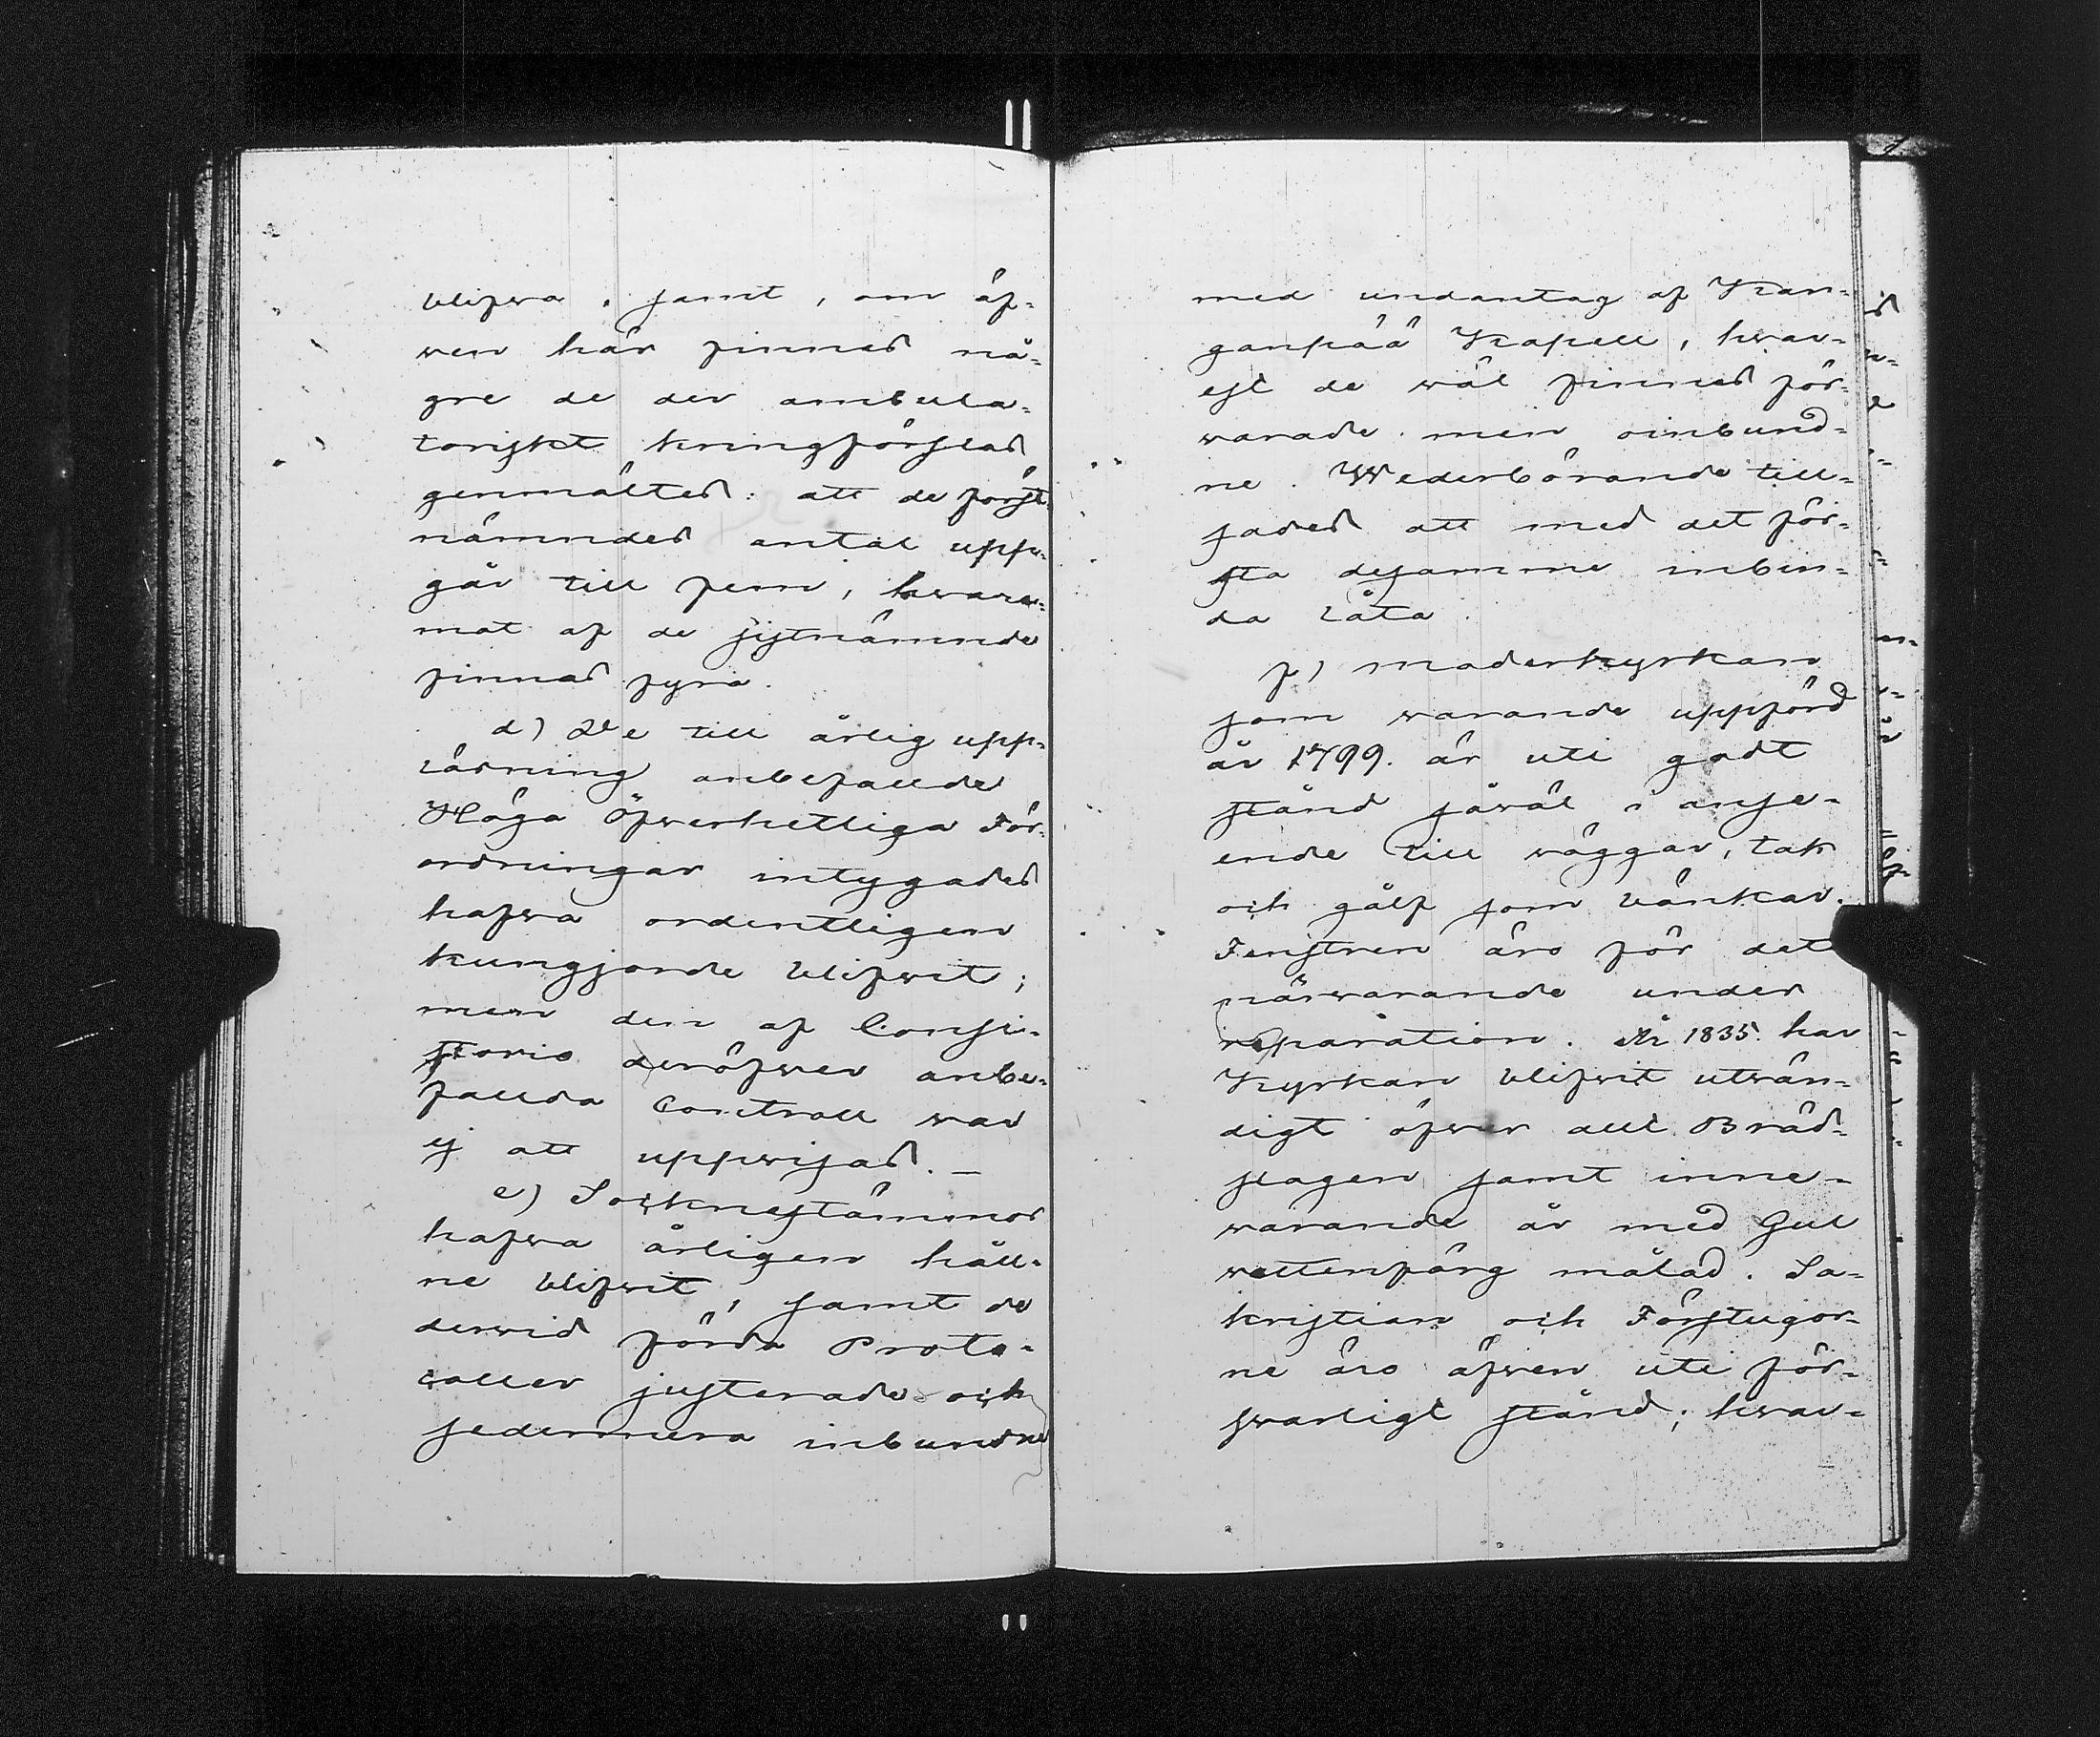 blifwa, samt, om äf-
wen här finnes nå-
gre de der ambula-
toriskt kringförslas
genmältes: att de först-
nämndes antal upp-
går till fem, hware-
mot af de sistnämnde
finnas fyra.
d) De till årlig upp-
läsning anbefallde
Höga Öfwerhetliga För-
ordningar intygades
hafwa ordentligen
kungjorde blifwit;
men den af Consi-
storio deröfwer anbe-
fallda Controll war
ej att uppwisas. —
e) Socknestämmor
hafwa årligen håll-
ne blifwit, samt de
derwid förda Proto-
coller justerade och
sedermera inbundne
med undantag af Kan-
ganpää Kapell, hwar-
est de wäl finnas för-
warade men oinbund-
ne. Wederbörande till-
sades att med det för-
sta desamme inbin-
da låta.
f) Moderkyrkan
som warande uppförd
år 1799. är uti godt
stånd såwäl i anse-
ende till wäggar, tak
och gålf som bänkar.
Fenstren äro för det
närwarande under
reparation. År 1835. har
Kyrkan blifwit utwän-
digt öfwer allt Bräd-
slagen samt inne-
warande år med Gul
wattenfärg målad. Sa-
kristian och Förstugor-
ne äro äfwen uti för-
swarligt stånd; hwar-